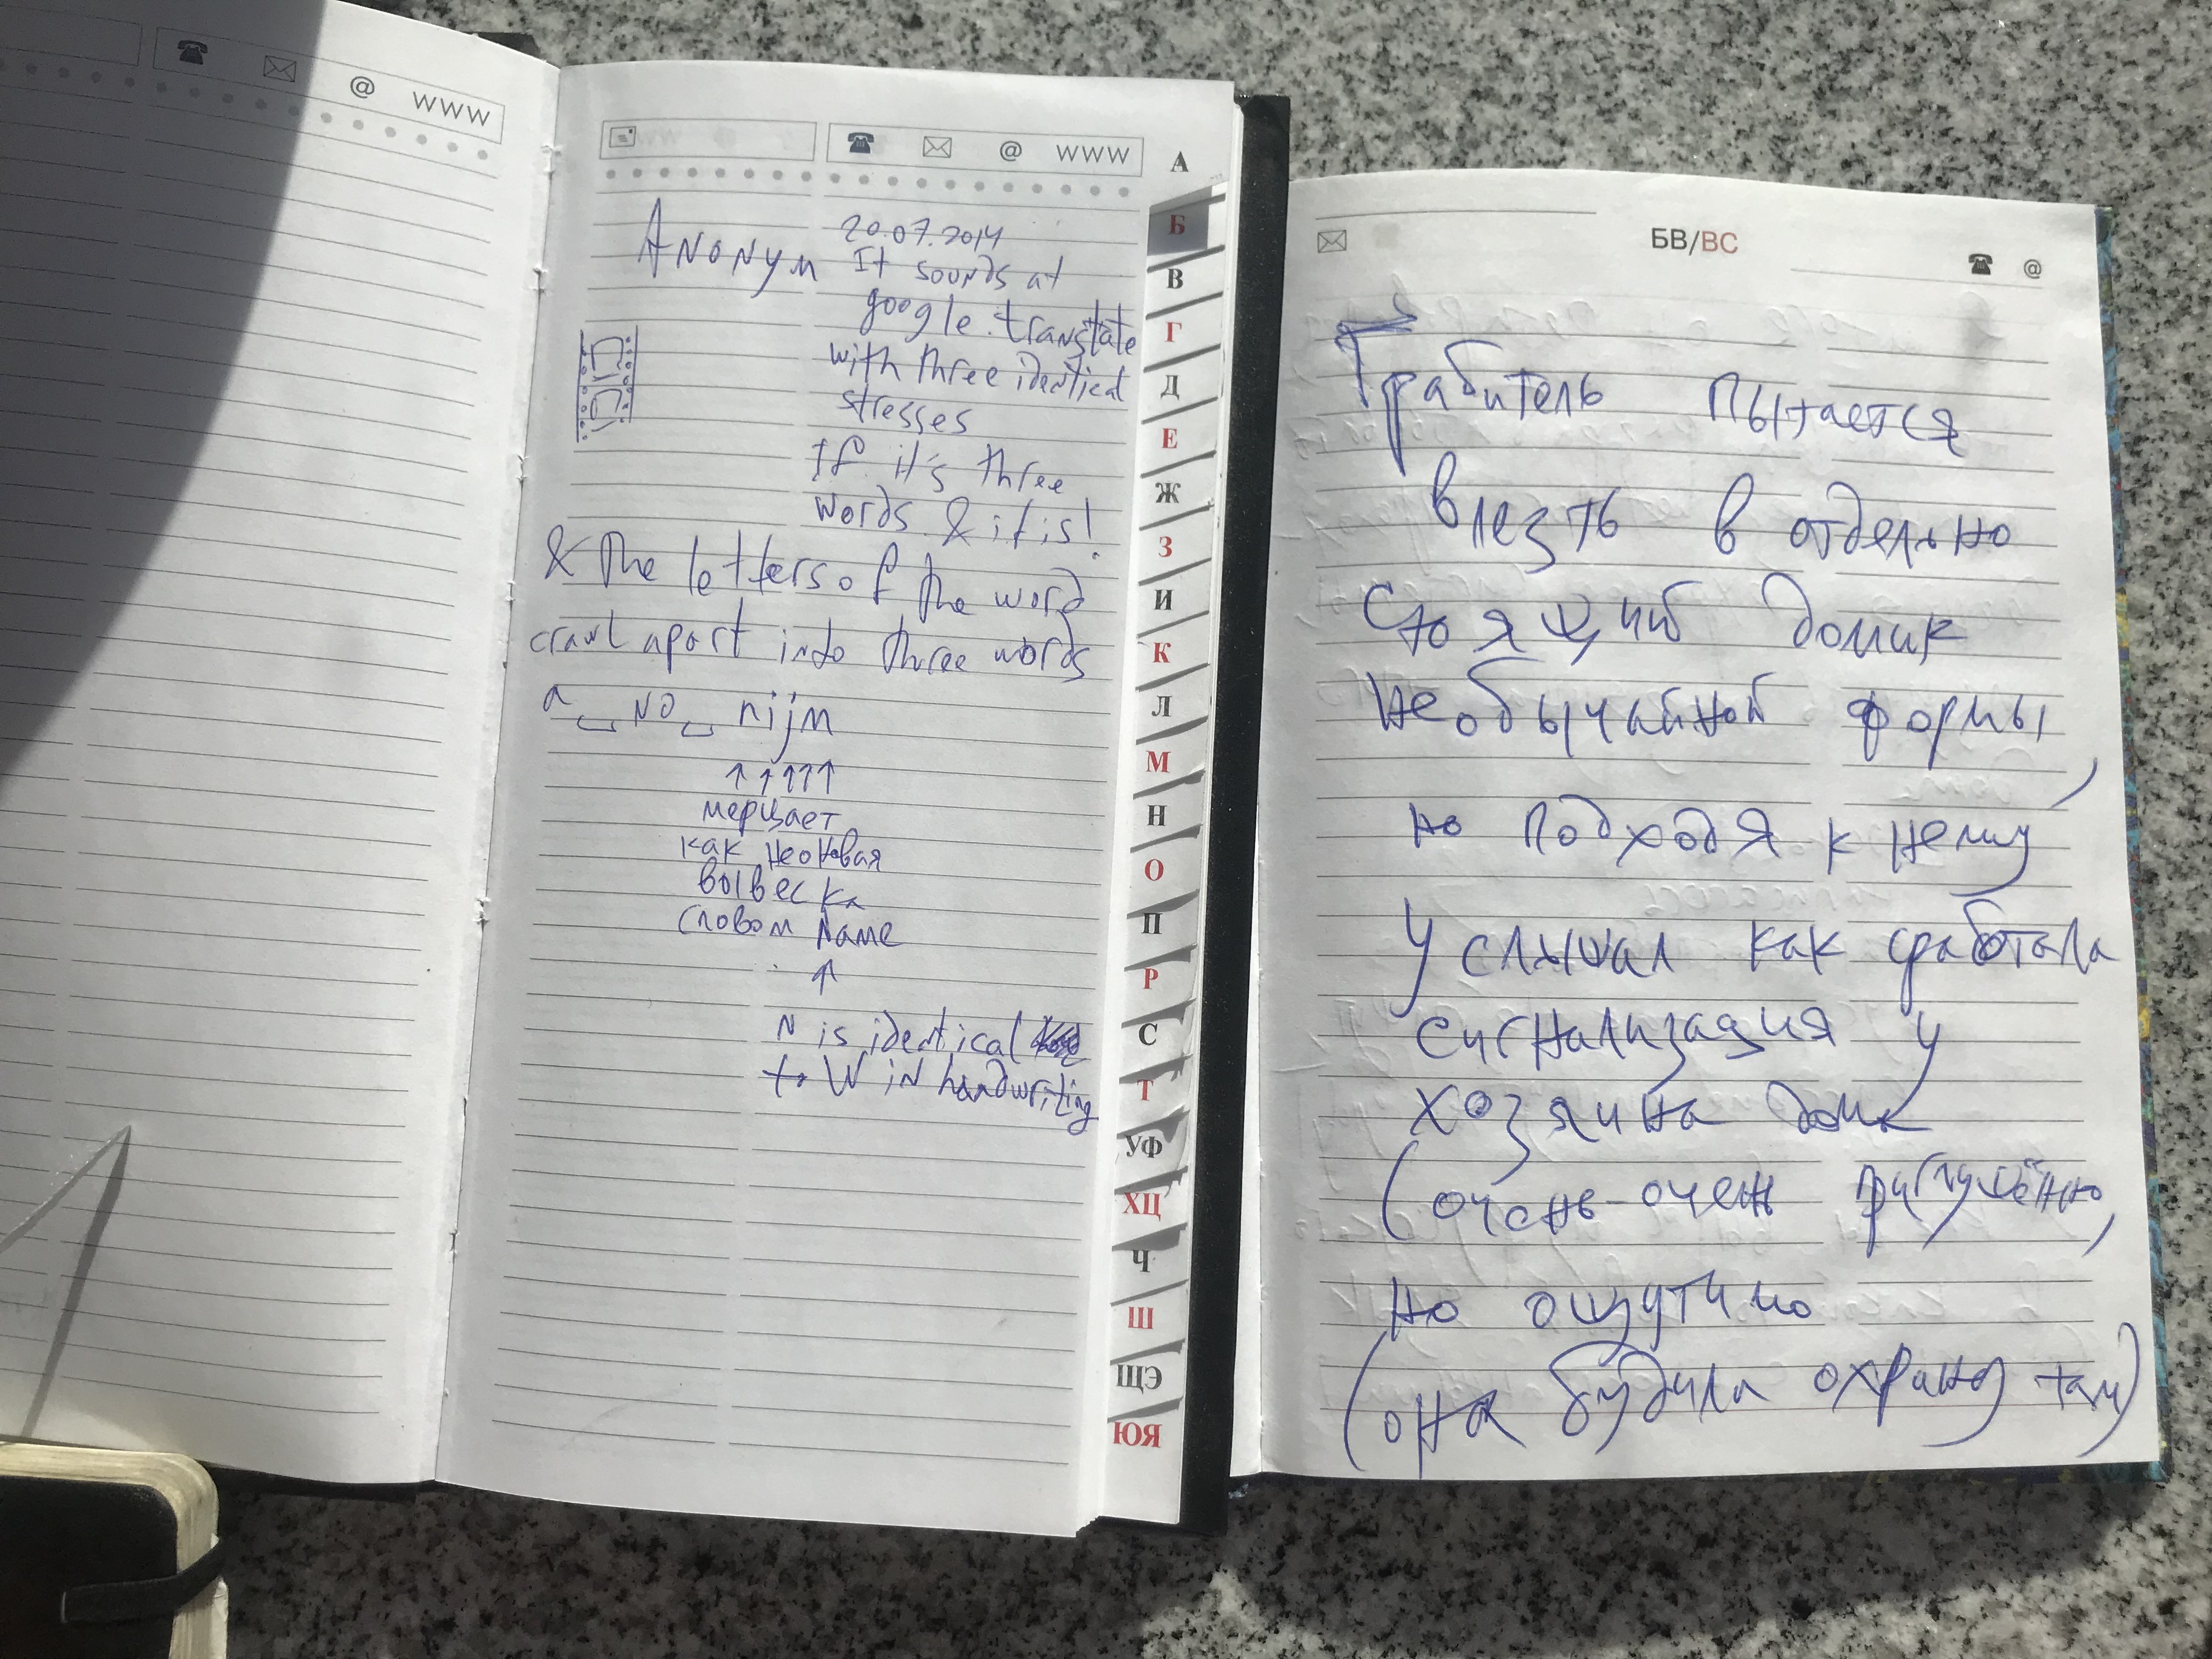 @ WWW
@ WWW
А
Б
В
Г
Д
Е
Ж
З
И
К
Л
М
Н
О
П
Р
С
Т
УФ
ХЦ
Ч
Ш
ЩЭ
ЮЯ
Anonym
20.07.2014
It sounds at
google.translate
with three identical
stresses
If it's three
words & it is!
& the letters of the word
crawl apart into three words
a ⎵ no ⎵ nijm
↑ ↑ ↑ ↑ ↑
мерцает
как неоновая
вывеска
словом name
↑
N is identical
to W in handwriting
БВ/BC
@
Грабитель пытается
влезть в отдельно
стоящий домик
необычайной формы,
но подходя к нему
услышал как сработала
сигнализация у
хозяина дома
(очень-очень приглушённо,
но ощутимо
(она будила охрану там)